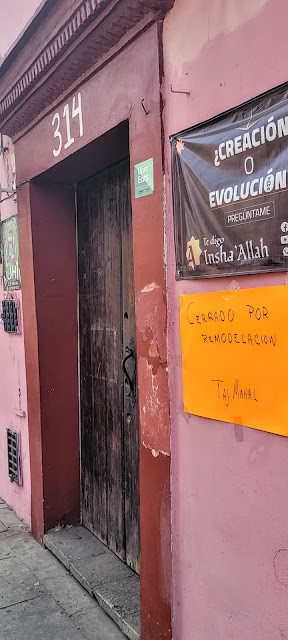 314
Uber
Eats
¿CREACIÓN
O
EVOLUCIÓN?
PREGÚNTAME
Te digo
Insha'Allah
CERRADO POR
REMODELACION
TAJ MAHAL